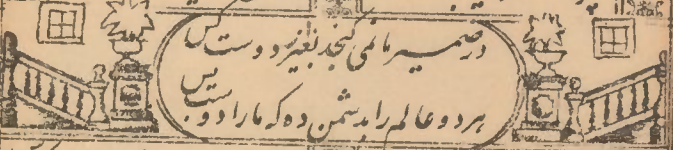 در ضمیر ما نمی گنجد بغیر از دوست کس
هر دو عالم را بدشمن ده که ما را دوست بس